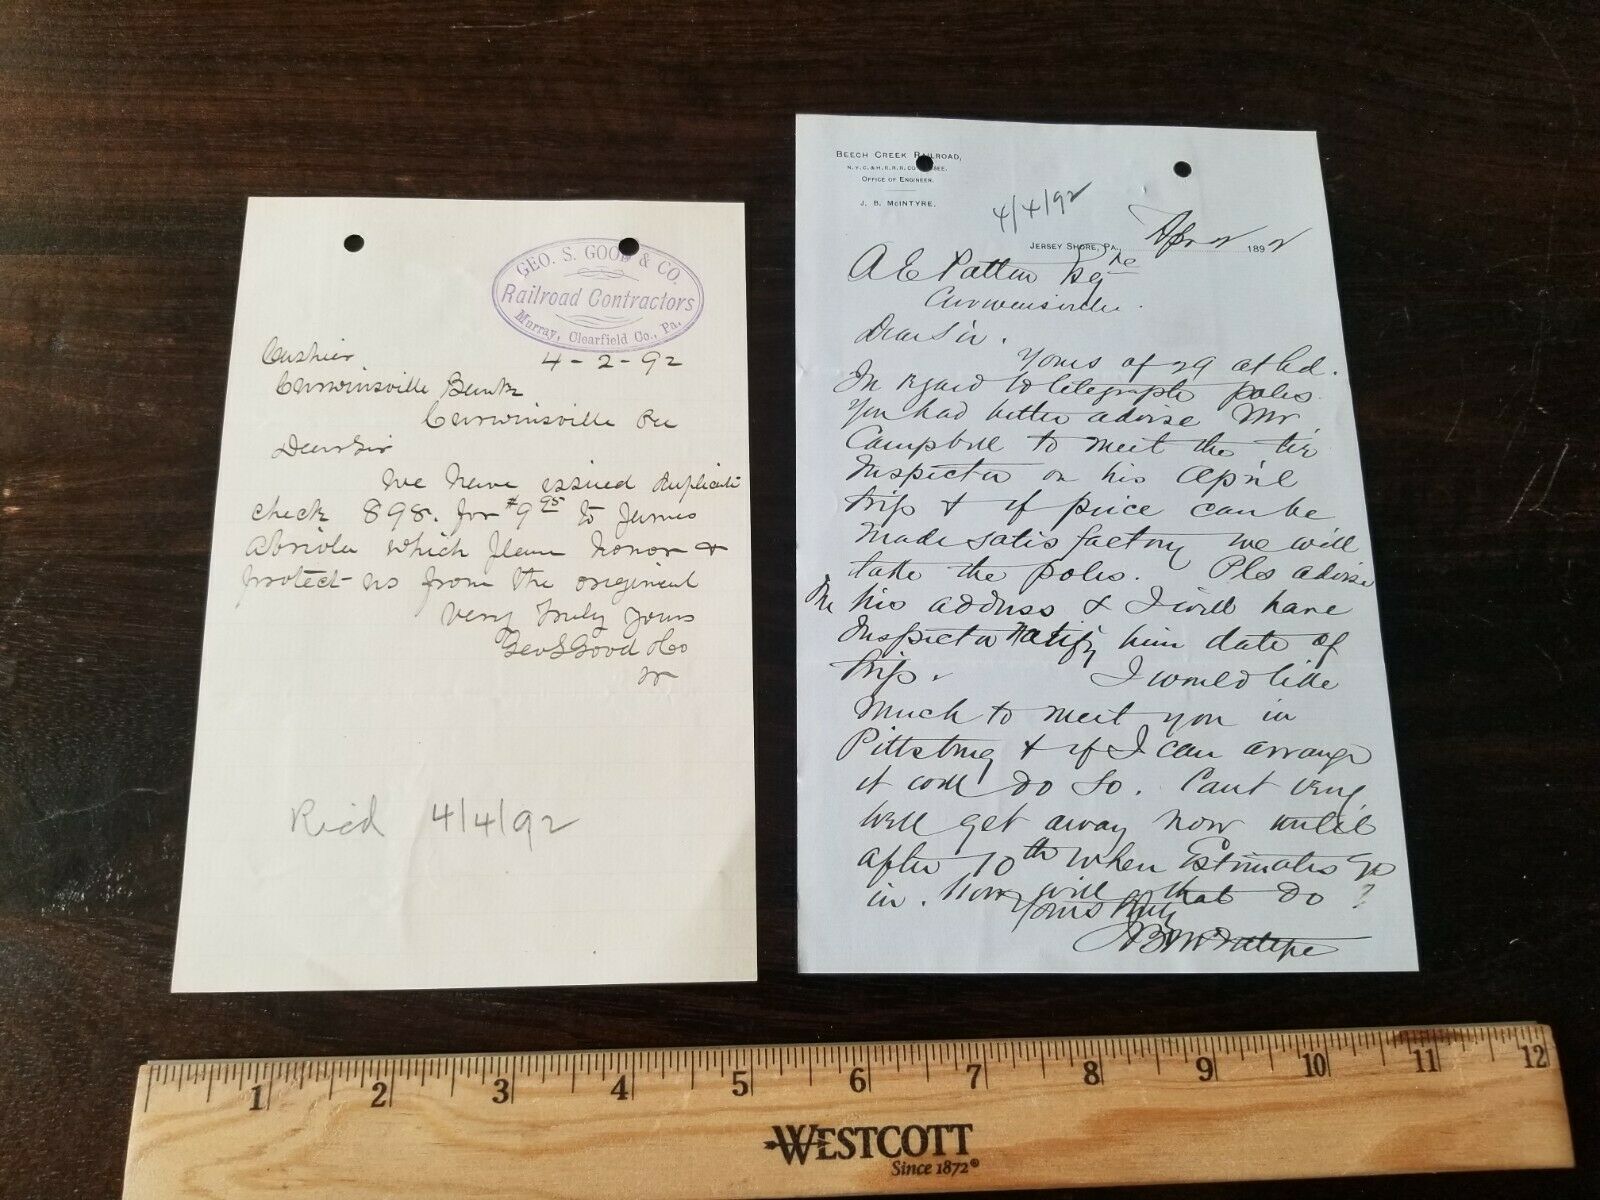 GEO. S. GOOD & CO.
Railroad Contractors
Murray, Clearfield Co., Pa.
4-2-92
Cashier
Curwinsville Bank
Curwinsville Pa
Dear Sir
We have issued Duplicate
check 898. for $9 95 to James
which please honor &
protect us from the original
Very Truly Yours
Geo S Good & Co
Rec'd 4/4/92
BEECH CREEK RAILROAD,
N.Y.C. & H.R.R.R. CO
OFFICE OF ENGINEER.
J. B. McINTYRE.
4/4/92
JERSEY SHORE, PA., Apr 2 1892
A E Patton Esq
Curwensville
Dear Sir.
Yours of 29 at hd.
In regard to telegraph poles
You had better advise Mr
Campbell to meet the tie
Inspector on his April
trip & if price can be
made satisfactory we will
take the poles. Pls advise
me his address & I will have
Inspector notify him date of
trip. I would like
much to meet you in
Pittsburg & if I can arrange
it will do so. Cant very
well get away now until
after 10th when Estimates go
in. How will that do?
Yours truly
J B McIntyre
1 2 3 4 5 6 7 8 9 10 11 12
WESTCOTT
Since 1872®